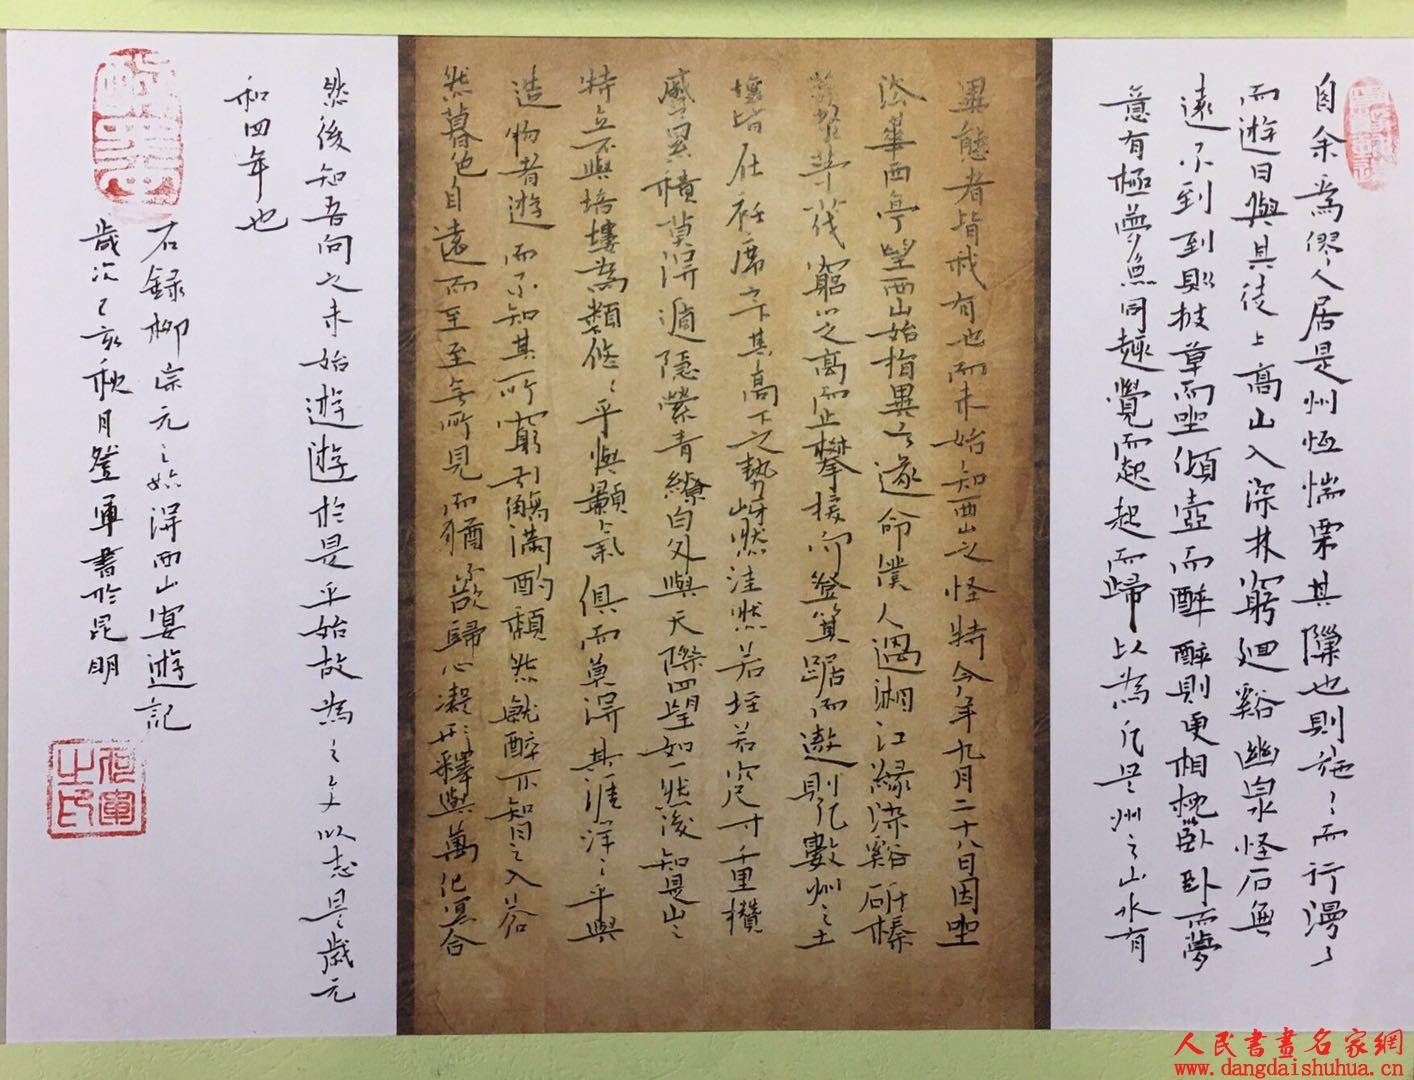 自余為僇人居是州恒惴栗其隟也則施〻而行漫〻
而遊日與其徒上高山入深林窮迴谿幽泉怪石無
遠不到到則披草而坐傾壺而醉醉則更相枕臥臥而夢
意有極夢亦同趣覺而起起而歸以為凡是州之山水有
異態者皆我有也而未始知西山之怪特今年九月二十八日因坐
法華西亭望西山始指異之遂命僕人過湘江緣染谿斫榛
莽焚茅茷窮山之高而止攀援而登箕踞而遨則凡數州之土
壤皆在衽席之下其高下之勢岈然洼然若垤若穴尺寸千里攢
蹙累積莫得遁隱縈青繚白外與天際四望如一然後知是山之
特立不與培塿為類悠〻乎與顥氣俱而莫得其涯洋〻乎與
造物者遊而不知其所窮引觴滿酌頹然就醉不知日之入蒼
然暮色自遠而至至無所見而猶不欲歸心凝形釋與萬化冥合
然後知吾向之未始遊遊於是乎始故為之文以志是歲元
和四年也
右錄柳宗元之始得西山宴遊記
歲次己亥秋月登軍書於昆明
人民書畫名家網
www.dangdaishuhua.cn